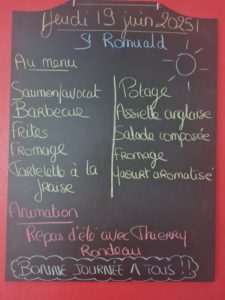 Jeudi 19 juin 2025
St Romuald
Au menu
Saumon/avocat
Barbecue
Frites
Fromage
Tartelette à la
fraise
Potage
Assiette anglaise
Salade composée
Fromage
Yaourt aromatisé
Animation
Repas d'été avec Thierry
Rondeau
BONNE JOURNÉE A TOUS !!